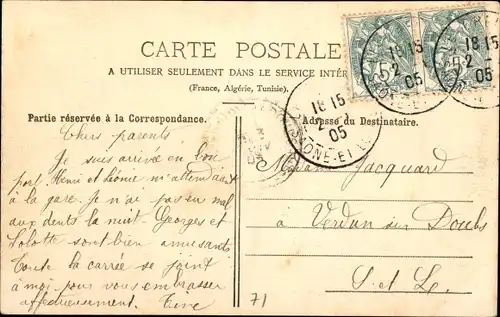 CARTE POSTALE
A UTILISER SEULEMENT DANS LE SERVICE INTÉR
(France, Algérie, Tunisie).
Partie réservée à la Correspondance.
Adresse du Destinataire.
Chers parents
Je suis arrivée en bon
port, Henri et Léonie m'attendaient
à la gare je n'ai pas eu mal
aux dents la nuit. Georges et
Lolotte sont bien amusants
Toute la carrée se joint
à moi pour vous embrasser
affectueusement.
Madame Jacquard
à Verdun sur Doubs
S. et L.
71
18 15
2
05
SAONE-ET-L
18 15
2
05
18 15
2
05
5